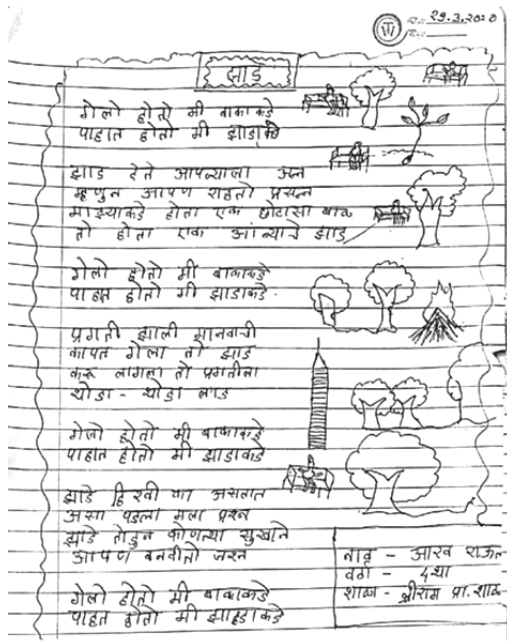 29.3.2020
झाड
गेलो होतो मी बाकाकडे
पाहात होतो मी झाडाकडे
झाड देते आपल्याला अन्न
म्हणुन आपण राहतो प्रसन्न
माझ्याकडे होता एक छोटासा बाळ
तो होता एक आंब्याचे झाड
गेलो होतो मी बाकाकडे
पाहात होतो मी झाडाकडे.
प्रगती झाली मानवाची
कापत गेला तो झाड
करू लागला तो प्रगतीला
थोडा - थोडा लाड
गेलो होतो मी बाकाकडे
पाहात होतो मी झाडाकडे
झाडे हिरवी का असतात
असा पडला मला प्रश्न
झाडे तोडुन कोणत्या सुखाने
आपण बनवीतो जश्न
गेलो होतो मी बाकाकडे
पाहत होतो मी झाडाकडे
नाव - आरव राऊत
वर्ग - ४था
शाळा - श्रीराम प्रा. शाळा